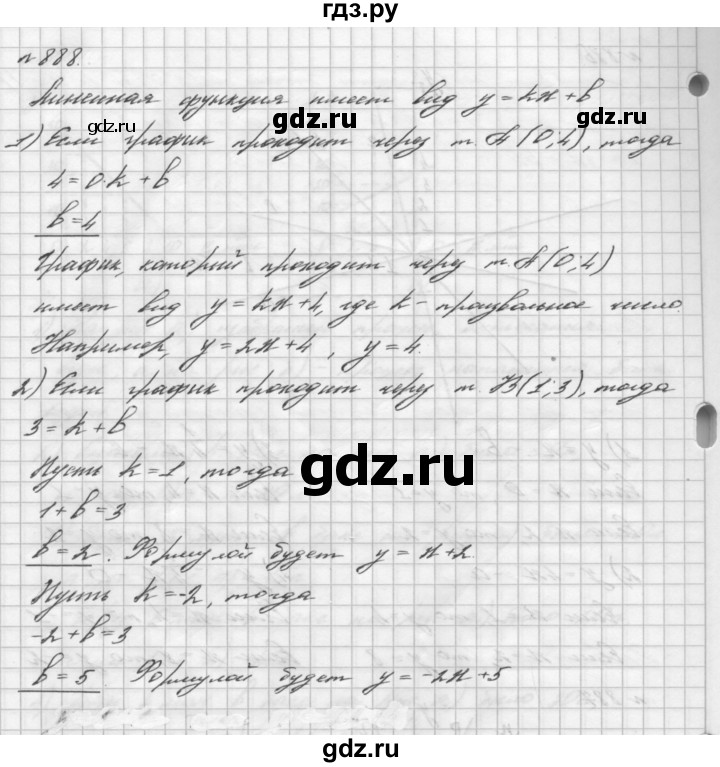 гдз.рф
№888.
Линейная функция имеет вид y = kx + b
gdz.ru gdz.ru
1) Если график проходит через т. A(0;4), тогда
4 = 0·k + b
b = 4
График, который проходит через т. A(0;4)
имеет вид y = kx + 4, где k - произвольное число.
Например, y = 2x + 4, y = 4.
2) Если график проходит через т. B(1;3), тогда
3 = k + b
gdz.ru
Пусть k = 1, тогда
1 + b = 3
b = 2. Формулой будет y = x + 2.
Пусть k = -2, тогда
-2 + b = 3
b = 5. Формулой будет y = -2x + 5
gdz.ru